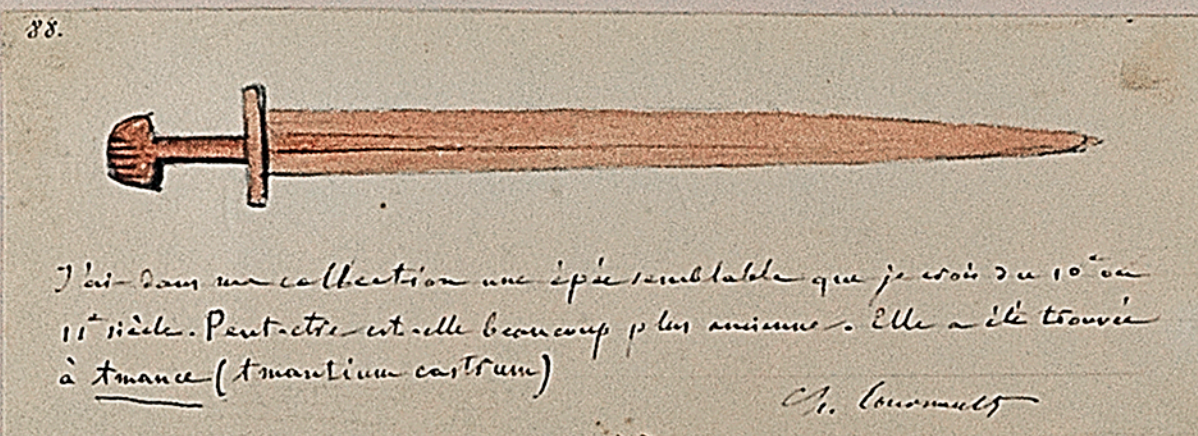 88.
J'ai dans ma collection une épée semblable que je crois du 10e ou
11e siècle. Peut-être est-elle beaucoup plus ancienne. Elle a été trouvée
à Amance (Amantium castrum)
Ch. Cournault